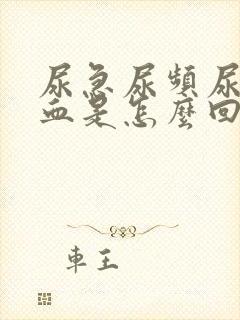 尿急尿頻尿
血是怎麼回
車王